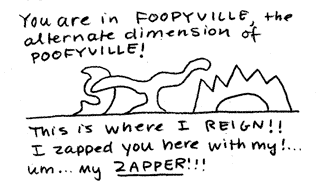 You are in FOOPYVILLE, the
alternate dimension of
POOFYVILLE!
This is where I REIGN!!
I zapped you here with my!...
um... my ZAPPER!!!